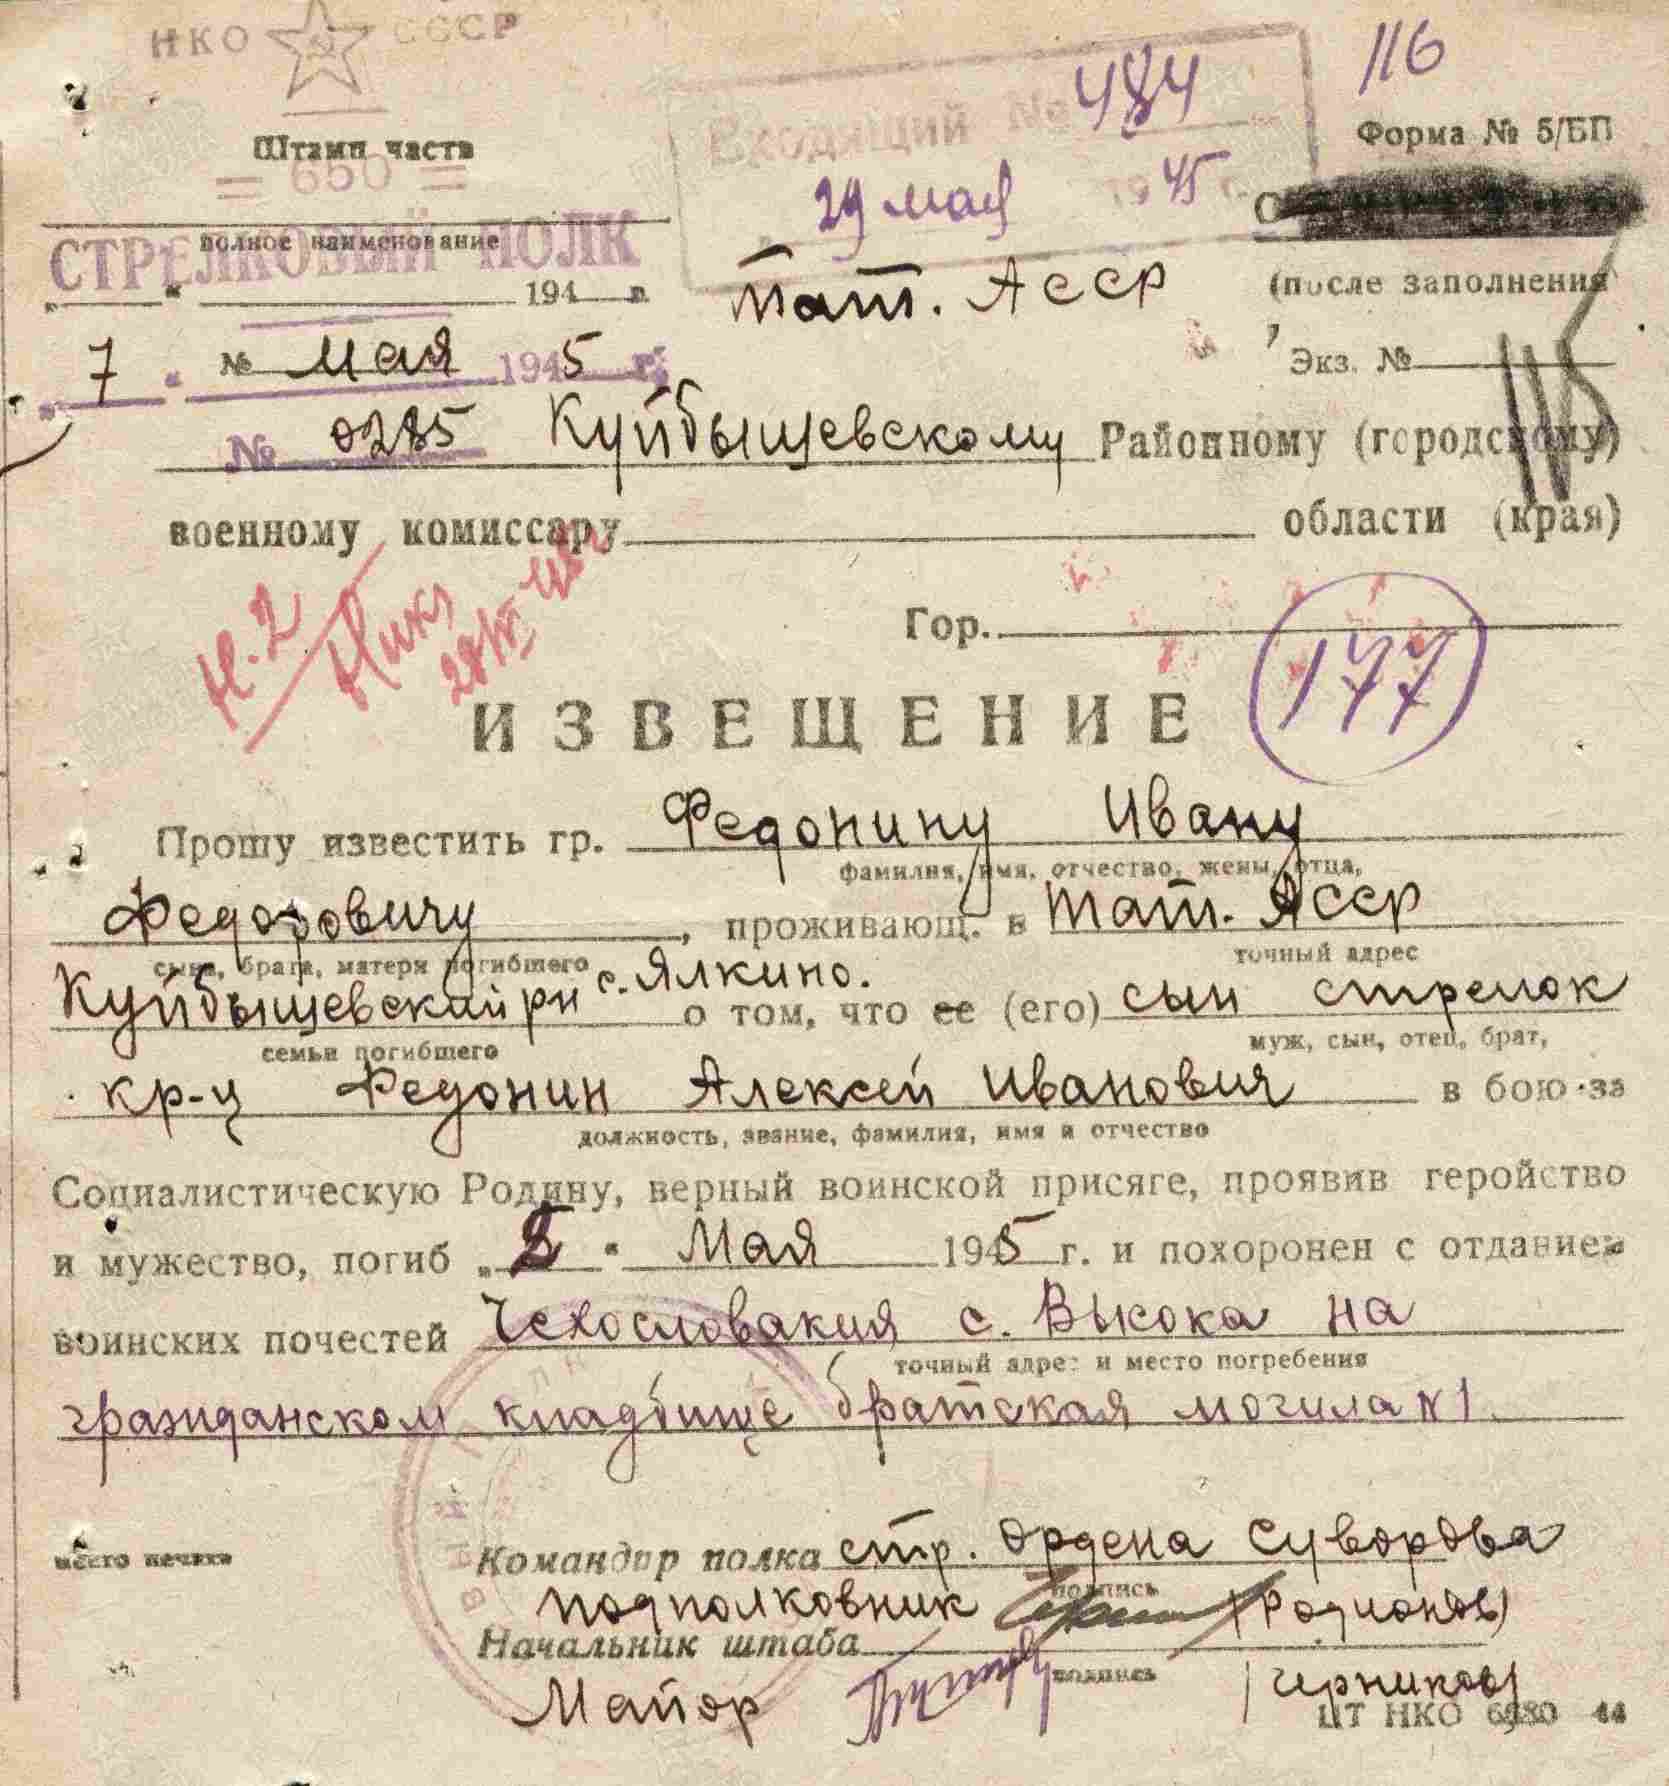 НКО СССР
116
Входящий № 484
29 мая 1945 г.
Форма № 5/БП
Штамп части
= 650 =
СТРЕЛКОВЫЙ ПОЛК
полное наименование
(после заполнения
„ “ 194 г.
Тат. АССР
Экз. №
7 “ № Мая 1945 г.
№ 0285 Куйбышевскому Районному (городскому)
военному комиссару области (края)
Гор.
н.2
177
ИЗВЕЩЕНИЕ
Прошу известить гр. Федонину Ивану
фамилия, имя, отчество, жены, отца,
Федоровичу, проживающ. в Тат. АССР
сына, брата, матери погибшего точный адрес
Куйбышевский рн с. Ялкино. о том, что ее (его) сын стрелок
семьи погибшего муж, сын, отец, брат,
кр-ц Федонин Алексей Иванович в бою за
должность, звание, фамилия, имя и отчество
Социалистическую Родину, верный воинской присяге, проявив геройство
и мужество, погиб „ “ Мая 1945 г. и похоронен с отданием
воинских почестей Чехословакия с. Высока на
точный адрес и место погребения
гражданском кладбище братская могила N 1.
место печати
Командир полка стр. Ордена Суворова
подпись
подполковник (Родионов)
Начальник штаба
подпись
Майор /Черников/
ЦТ НКО 6980 44